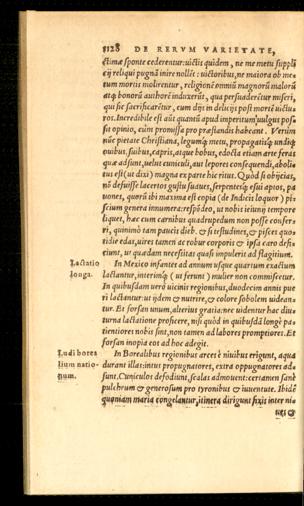 1128 DE RERVM VARIETATE,
ctimæ sponte cederentur: uictis quidem, ne me metu suppli
cij reliqui pugnā inire nollēt: uictoribus, ne maiora ob me
tum mortis molirentur, religionē omniū magnorū malorū
atq; bonorū authorē induxerūt, qua persuaderētur miseri,
qui sic sacrificarētur, cum dijs in delicijs post mortē uictu-
ros. Incredibile est aūt quantū apud imperitum uulgus pos-
sit opinio, cùm promissa pro præstandis habeant. Verùm
núc pietate Christiana, legumq́; metu, propagatisq; undiq;
ouibus, suibus, capris, atque bobus, edocta etiam arte feras
quæ adsunt, uelut cuniculi, aut lepores consequendi, abolitus
est (ut dixi) magna ex parte hic ritus. Quòd si obijcias,
nō defuisse lacertos gustu suaues, serpentesq́; esui aptos, pa
uones, quorū ibi maxima est copia (de Indicis loquor) pi-
scium genera innumera: respōdeo, ut nobis ieiunij tempore
liquet, hac cum carnibus quadrupedum non posse confer-
ri, quinimò tam paucis dieb. & si testudines, & pisces quo-
tidie edas, uires tamen ac robur corporis & ipsa caro defi-
ciunt, ut quadam necessitas quasi impulerit ad flagitium.
Lactatio longa.
In Mexico infantes ad annum usque quartum exactum
lactantur, interimq́; (ut ferunt) mulier non commiscetur.
In quibusdam uerò uicinis regionibus, duodecim annis pue
ri lactantur: ut ijdem & nutrire, & colore sobolem uidean-
tur. Et forsan unum, alterius gratia: nec uidentur hac diu-
turna lactatione proficere, nisi quòd in quibusdā longè pa-
tientiores nobis sint, non tamen ad labores promptiores. Et
forsan inopia eos ad hoc adegit.
Ludi borea
lium natio-
num.
In Borealibus regionibus arces è niuibus erigunt, aqua
durant illas: intus propugnatores, extra oppugnatores ad-
sunt. Cuniculos defodiunt, scalas admouent: certamen sanè
pulchrum & generosum pro tyronibus & iuuentute. Ibidē
quoniam maria congelantur, itinera dirigunt fixis inter ni